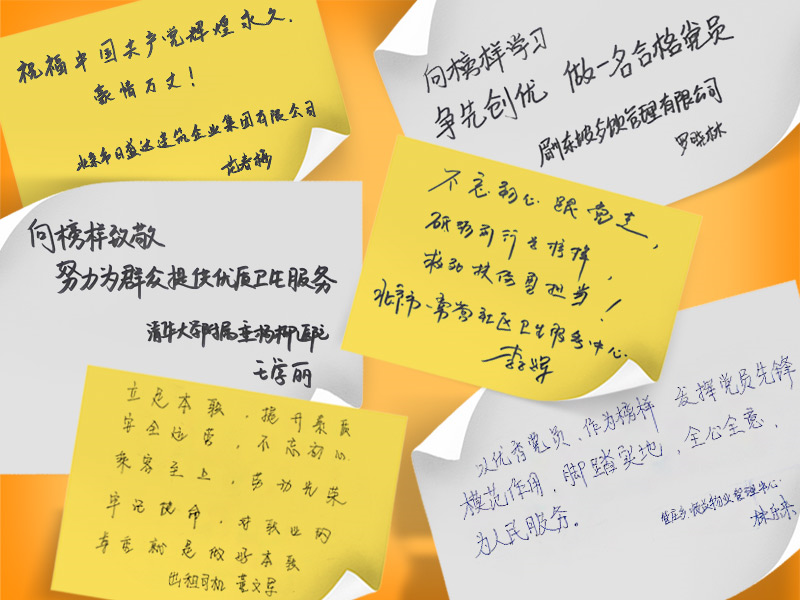 祝福中国共产党辉煌永久.
豪情万丈！
北京市日盛达建筑企业集团有限公司
范春梅
向榜样学习
争先创优 做一名合格党员
餐饮管理有限公司
罗晓林
向榜样致敬
努力为群众提供优质卫生服务
清华大学附属垂杨柳医院
王学丽
不忘初心跟党走，
砥砺前行
救死扶伤勇担当！
北京市常营社区卫生服务中心
李辉
立足本职，提升素质
安全运营，不忘初心
乘客至上，劳动光荣
牢记使命，对职业的
尊重就是做好本职
出租司机 董文军
以优秀党员，作为榜样 发挥党员先锋
模范作用，脚踏实地，全心全意，
为人民服务。
物业管理中心
林乐来